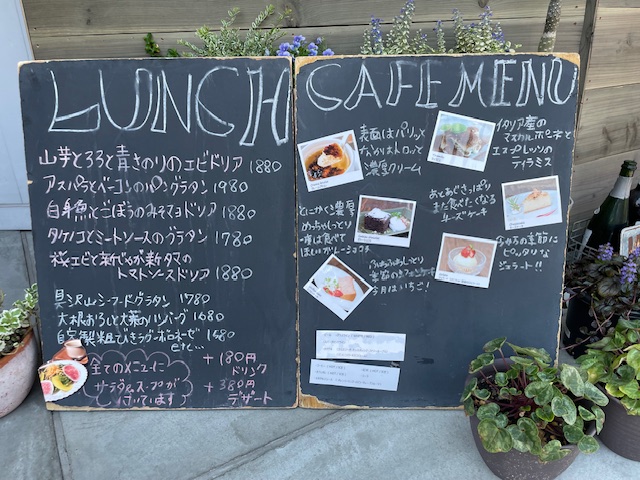 LUNCH
山芋とろろと青さのりのエビドリア 1880
アスパラとベーコンのパングラタン 1980
白身魚とごぼうのみそマヨドリア 1880
タケノコとミートソースのグラタン 1780
桜エビと菜花や新タマの
トマトソースドリア 1880
具沢山シーフードグラタン 1780
大根おろしと大葉のハンバーグ 1680
自家製粗びきラグーボロネーゼ 1680
etc...
全てのメニューに
サラダ&スープが
付いています
+180円
ドリンク
+380円
デザート
CAFE MENU
表面はパリッと
中
とろっと
濃厚クリーム
イタリア産の
マスカルポーネと
エスプレッソの
ティラミス
とにかく濃厚
めっちゃしっとり
一度は食べて
ほしいガトーショコラ
あとあじさっぱり
また食べたくなる
チーズケーキ
ふわふわしっとり
季節のシフォンケーキ
今月はいちご!
今の季節に
ピッタリな
ジェラート!!